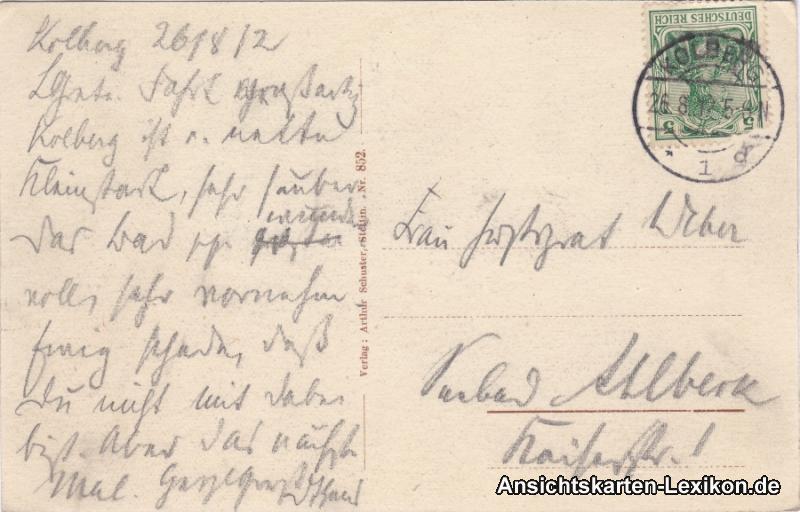 Kolberg 26/8/12
L. Grete. Fahrt großartig
Kolberg ist e. nette
Kleinstadt, sehr sauber
das Bad ist wunder
voll, sehr vornehm
Ewig schade, daß
Du nicht mit dabei
bist. Aber das nächste
Mal.
Verlag: Arthur Schuster, Stettin. Nr. 852.
DEUTSCHES REICH
5 5
KOLBERG
26.8.12. 5-6 N
1 d
Frau Justizrat Weber
Seebad Ahlbeck
Kaiserstr. 1
Ansichtskarten-Lexikon.de